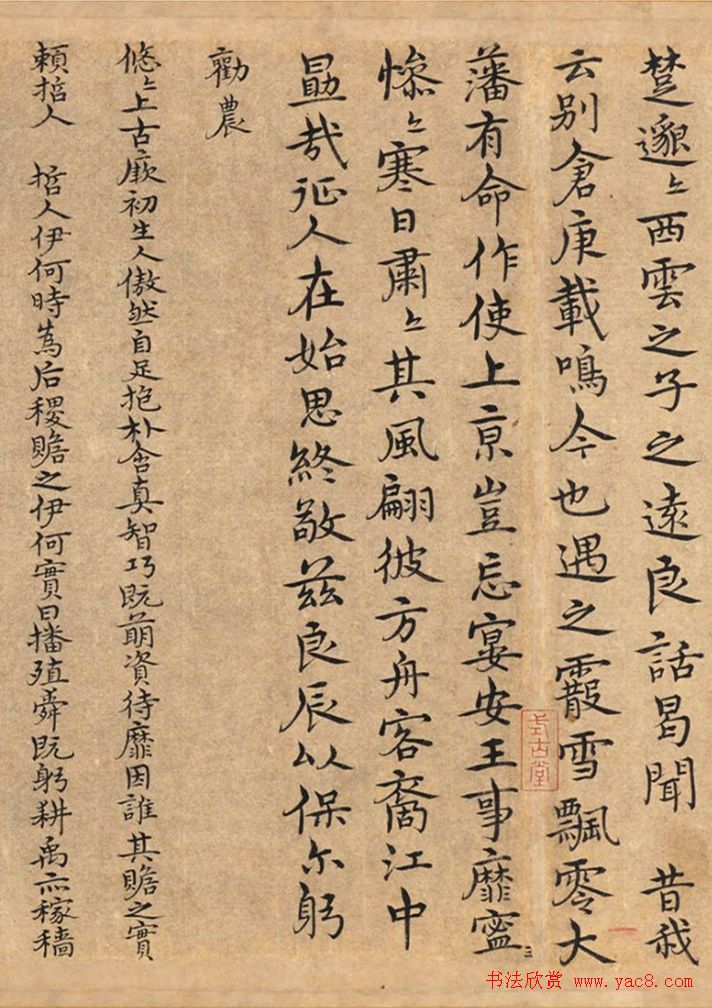 楚邈々西雲之子之遠良話曷聞 昔我
云别倉庚載鳴今也遇之霰雪飄零大
藩有命作使上亰豈忘宴安王事靡寧
慘々寒日肅々其風翩彼方舟客裔江中
勗哉征人在始思終敬兹良辰以保尔躬
勸農
悠々上古厥初生人傲然自足抱朴含真智巧既萠資待靡因誰其贍之實
頼哲人 哲人伊何時為后稷贍之伊何實曰播殖舜既躬耕禹亦稼穡
式古堂
书法欣赏 www.yac8.com